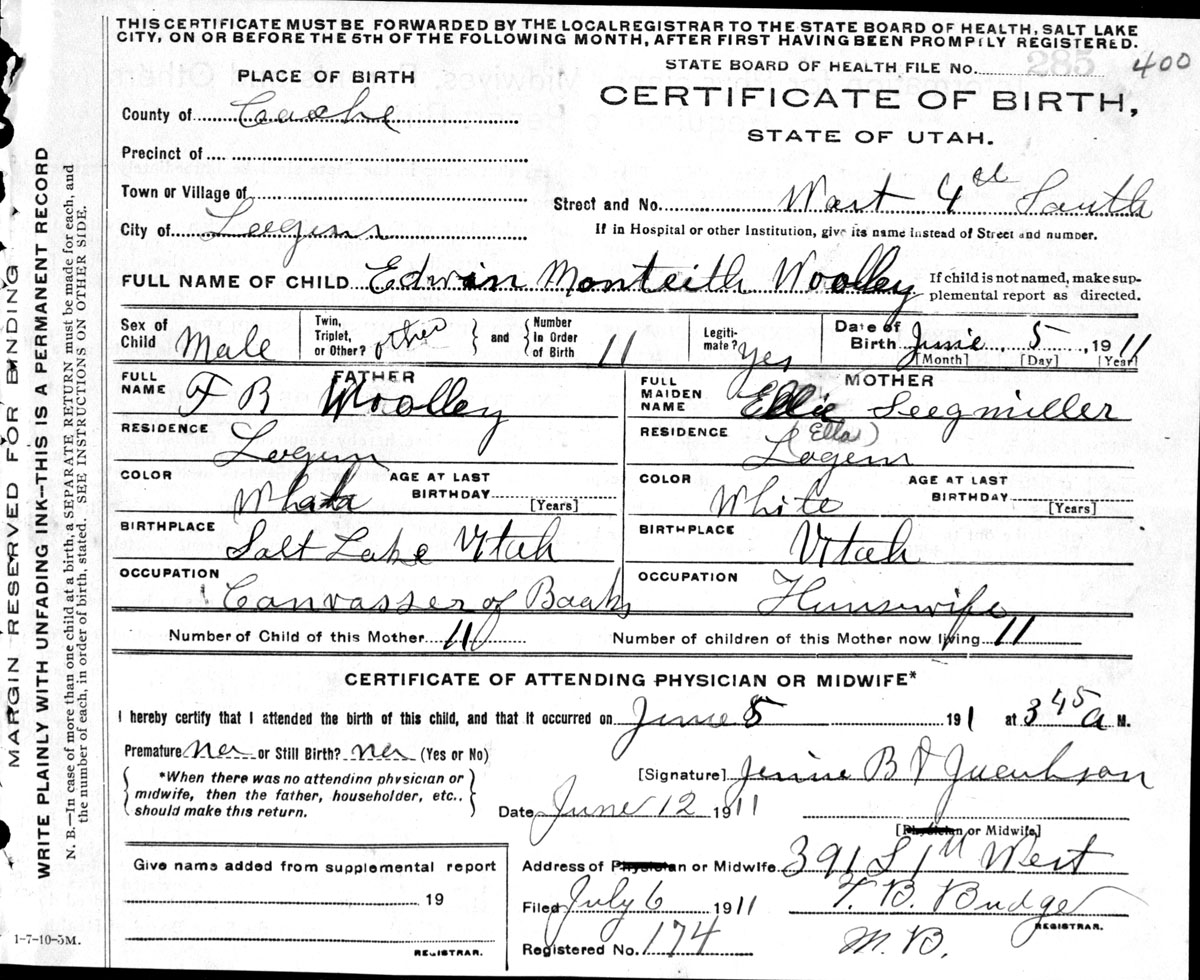 THIS CERTIFICATE MUST BE FORWARDED BY THE LOCAL REGISTRAR TO THE STATE BOARD OF HEALTH, SALT LAKE
CITY, ON OR BEFORE THE 5TH OF THE FOLLOWING MONTH, AFTER FIRST HAVING BEEN PROMPTLY REGISTERED.
STATE BOARD OF HEALTH FILE No. 285 400
PLACE OF BIRTH
CERTIFICATE OF BIRTH,
STATE OF UTAH.
County of Cache
Precinct of
Town or Village of
Street and No. West 4th South
City of
If in Hospital or other Institution, give its name instead of Street and number.
FULL NAME OF CHILD Edwin Monteith Woolley
If child is not named, make sup-
plemental report as directed.
Sex of Child Male
Twin, Triplet, or Other?
and
Number In Order of Birth 11
Legiti-mate? yes
Date of Birth June 5, 1911
[Month] [Day] [Year]
FATHER
FULL NAME F B Woolley
MOTHER
FULL MAIDEN NAME Ellie Seegmiller
(Ella)
RESIDENCE Logan
RESIDENCE Logan
COLOR White
AGE AT LAST BIRTHDAY [Years]
COLOR White
AGE AT LAST BIRTHDAY [Years]
BIRTHPLACE Salt Lake Utah
BIRTHPLACE Utah
OCCUPATION Canvasser of Books
OCCUPATION Housewife
Number of Child of this Mother 11
Number of children of this Mother now living 11
CERTIFICATE OF ATTENDING PHYSICIAN OR MIDWIFE*
I hereby certify that I attended the birth of this child, and that it occurred on June 5 191 1 at 3 45 a M.
Premature no or Still Birth? no (Yes or No)
*When there was no attending physician or
midwife, then the father, householder, etc.,
should make this return.
[Signature]
Date June 12 1911
[Physician or Midwife]
Address of Physician or Midwife 391 S 1st West
Give name added from supplemental report
19
REGISTRAR.
Filed July 6 1911
T. B. Budge
REGISTRAR.
Registered No. 174
M.D.
1-7-10-5M.
MARGIN RESERVED FOR BINDING
WRITE PLAINLY WITH UNFADING INK--THIS IS A PERMANENT RECORD
N. B.—In case of more than one child at a birth, SEPARATE RETURN must be made for each, and
the number of each, in order of birth, stated. SEE INSTRUCTIONS ON OTHER SIDE.